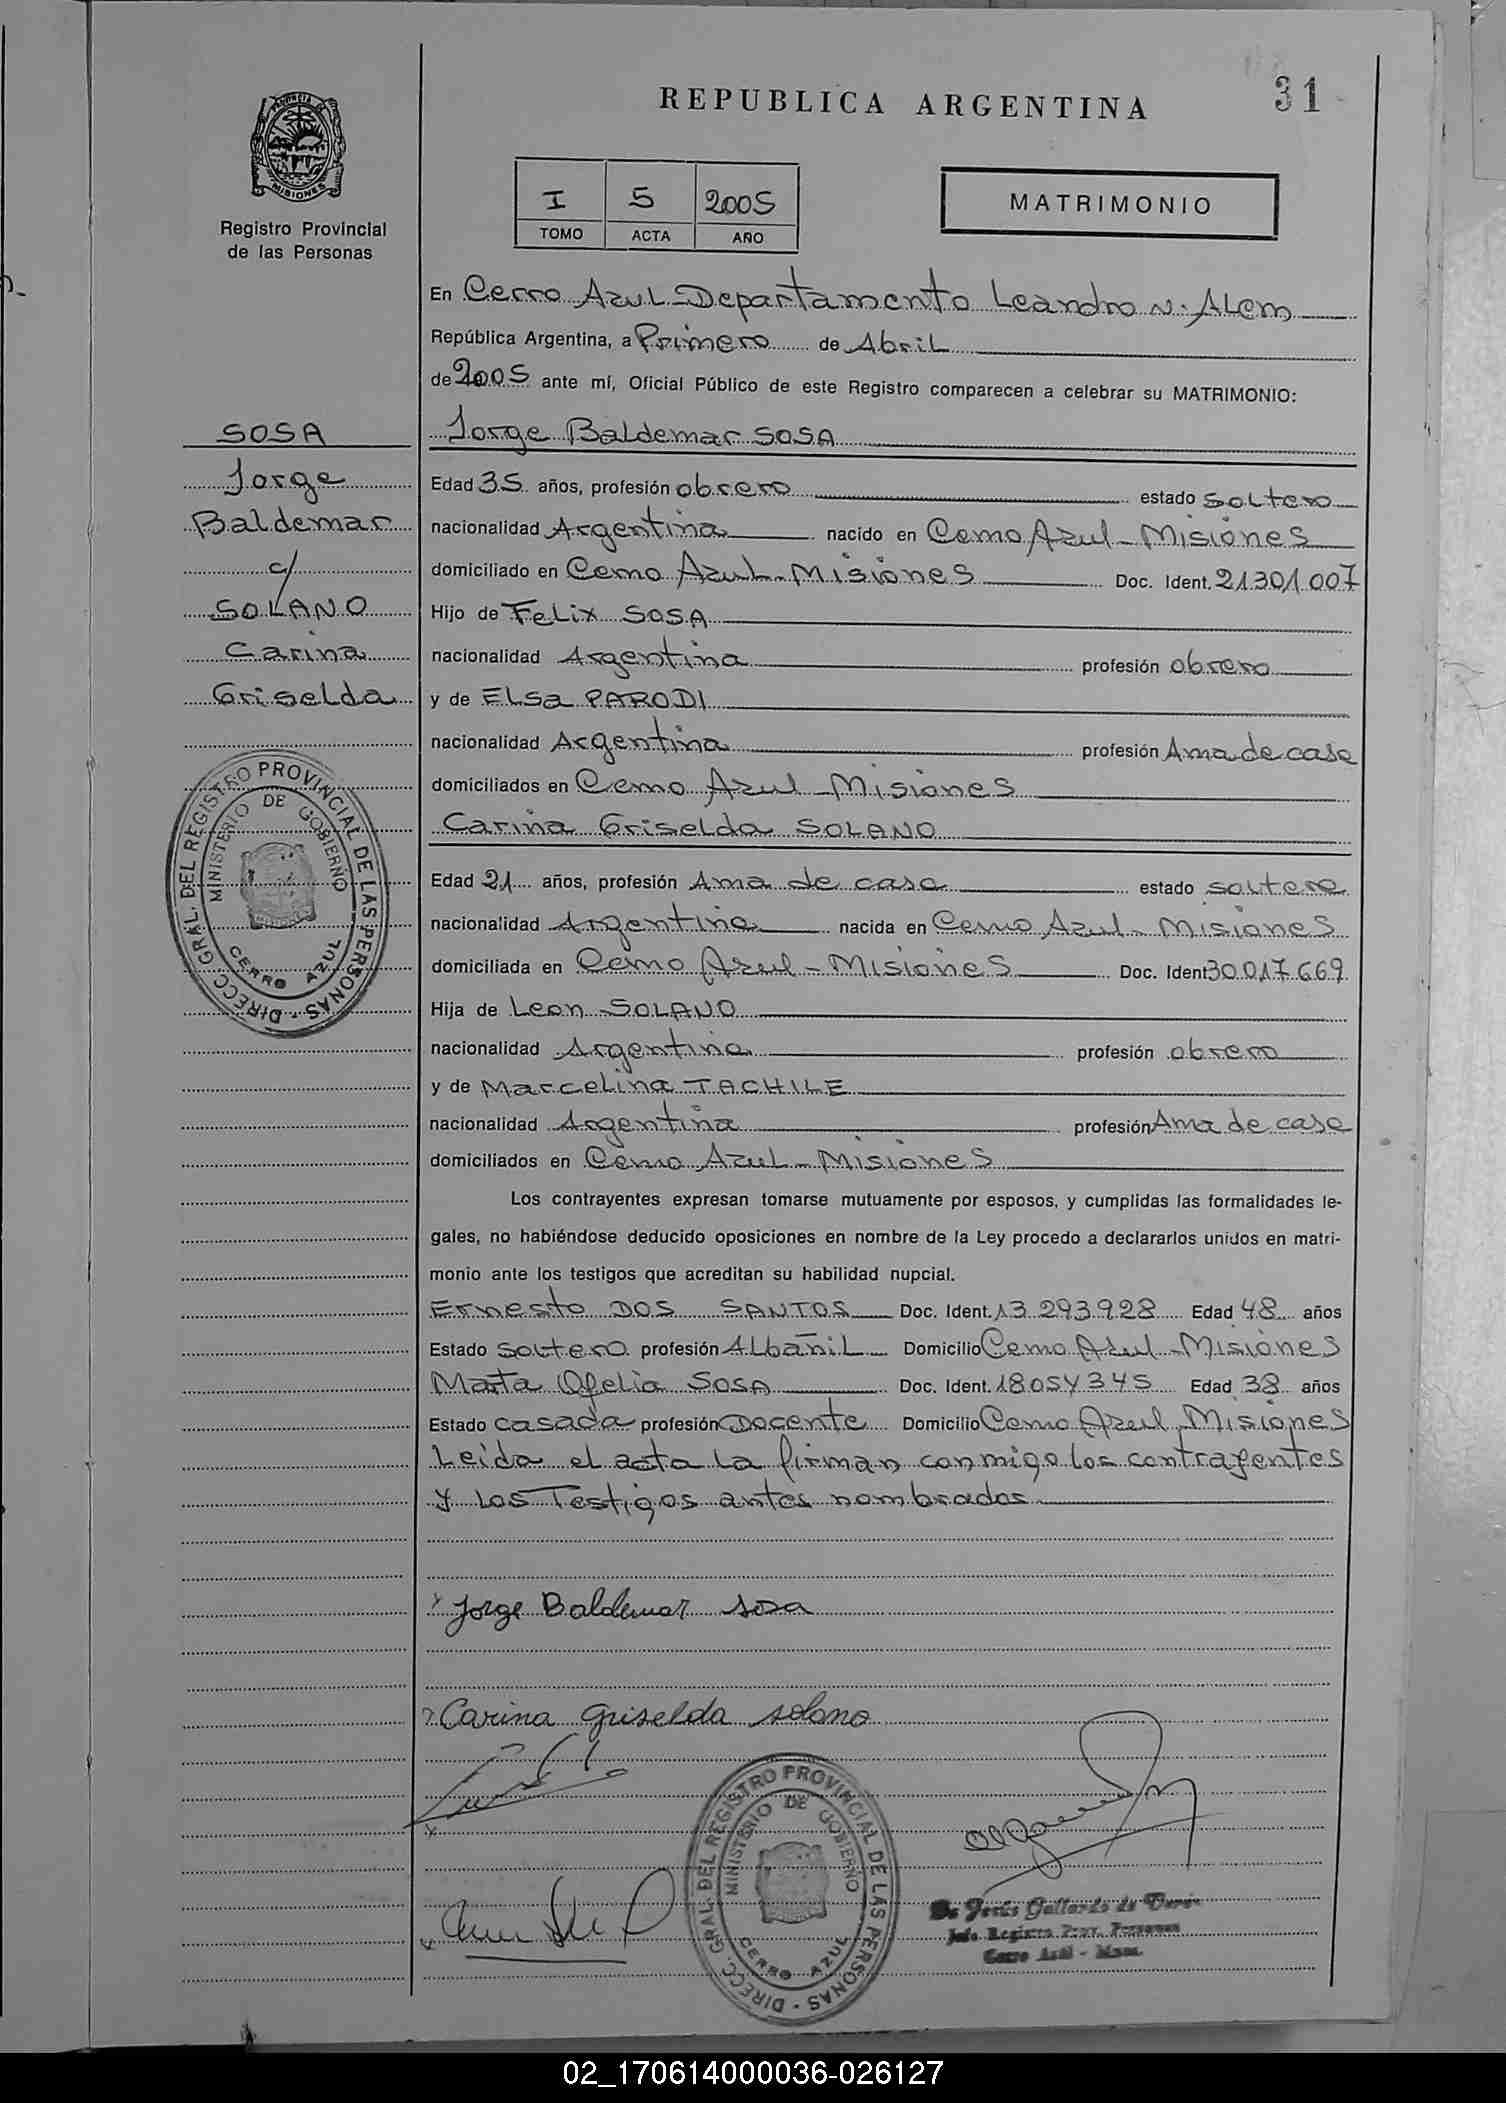 REPUBLICA ARGENTINA
31
PROVINCIA DE MISIONES
Registro Provincial
de las Personas
I 5 2005
TOMO ACTA AÑO
MATRIMONIO
En Cerro Azul - Departamento Leandro N. Alem
República Argentina, a Primero de Abril
de 2005 ante mí, Oficial Público de este Registro comparecen a celebrar su MATRIMONIO:
SOSA
Jorge
Baldemar
c/
SOLANO
Carina
Griselda
Jorge Baldemar SOSA
Edad 35 años, profesión obrero estado soltero
nacionalidad Argentina nacido en Cerro Azul - Misiones
domiciliado en Cerro Azul - Misiones Doc. Ident. 21.301.007
Hijo de Felix SOSA
nacionalidad Argentina profesión obrero
y de Elsa PARODI
nacionalidad Argentina profesión Ama de casa
domiciliados en Cerro Azul - Misiones
Carina Griselda SOLANO
Edad 21 años, profesión Ama de casa estado soltera
nacionalidad Argentina nacida en Cerro Azul - Misiones
domiciliada en Cerro Azul - Misiones Doc. Ident 30.017.669
Hija de Leon SOLANO
nacionalidad Argentina profesión obrero
y de Marcelina TACHILE
nacionalidad Argentina profesión Ama de casa
domiciliados en Cerro Azul - Misiones
Los contrayentes expresan tomarse mutuamente por esposos, y cumplidas las formalidades le-
gales, no habiéndose deducido oposiciones en nombre de la Ley procedo a declararlos unidos en matri-
monio ante los testigos que acreditan su habilidad nupcial.
Ernesto DOS SANTOS Doc. Ident. 13.293.928 Edad 48 años
Estado soltero profesión Albañil Domicilio Cerro Azul - Misiones
Marta Ofelia SOSA Doc. Ident. 18.054.345 Edad 38 años
Estado casada profesión Docente Domicilio Cerro Azul Misiones
Leida el acta la firman conmigo los contrayentes
y los Testigos antes nombrados
Jorge Baldemar Sosa
Carina Griselda Solano
DIRECC. GRAL. DEL REGISTRO PROVINCIAL DE LAS PERSONAS
MINISTERIO DE GOBIERNO
CERRO AZUL
DIRECC. GRAL. DEL REGISTRO PROVINCIAL DE LAS PERSONAS
MINISTERIO DE GOBIERNO
CERRO AZUL
Jesús Gallardo de
Jefe Registro Prov. Personas
Cerro Azul - Mnes.
02_170614000036-026127